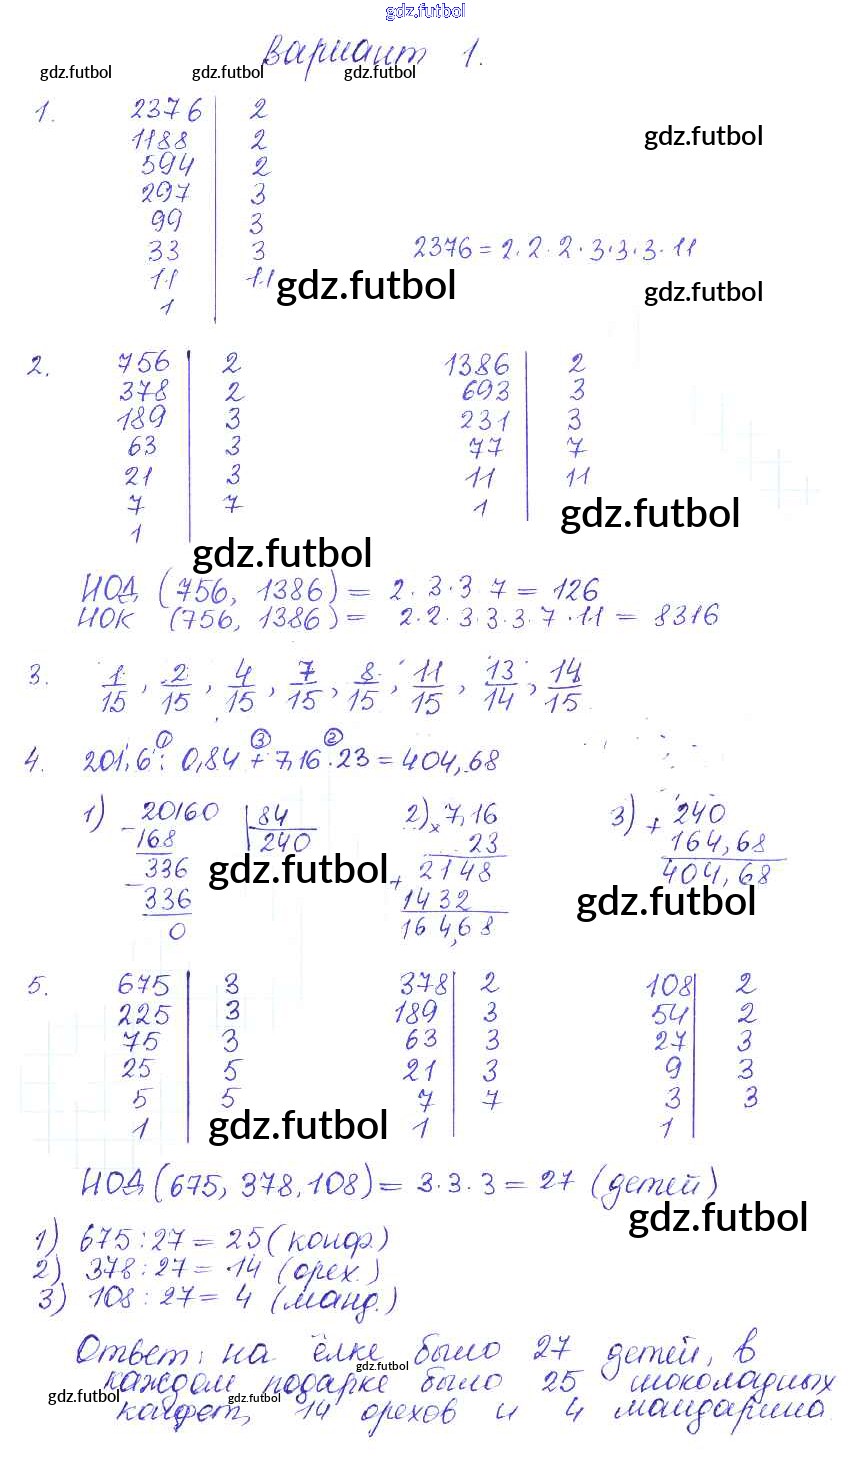 gdz.futbol
Вариант 1.
gdz.futbol gdz.futbol gdz.futbol
1. 2376 | 2
1188 | 2
594 | 2
297 | 3
99 | 3
33 | 3
11 | 11
1
gdz.futbol
2376 = 2·2·2·3·3·3·11
gdz.futbol gdz.futbol
2. 756 | 2 1386 | 2
378 | 2 693 | 3
189 | 3 231 | 3
63 | 3 77 | 7
21 | 3 11 | 11
7 | 7 1
1
gdz.futbol
gdz.futbol
НОД (756, 1386) = 2·3·3·7 = 126
НОК (756, 1386) = 2·2·3·3·3·7·11 = 8316
3. 1/15, 2/15, 4/15, 7/15, 8/15, 11/15, 13/14, 14/15
① ③ ②
4. 201,6 : 0,84 + 7,16 · 23 = 404,68
1) 20160 | 84 2) × 7,16 3) + 240
- 168 | 240 23 164,68
336 + 2148 404,68
- 336 1432
0 164,68
gdz.futbol gdz.futbol
5. 675 | 3 378 | 2 108 | 2
225 | 3 189 | 3 54 | 2
75 | 3 63 | 3 27 | 3
25 | 5 21 | 3 9 | 3
5 | 5 7 | 7 3 | 3
1 1 1
gdz.futbol gdz.futbol
НОД (675, 378, 108) = 3·3·3 = 27 (детей)
gdz.futbol
1) 675 : 27 = 25 (конф.)
2) 378 : 27 = 14 (орех.)
3) 108 : 27 = 4 (манд.)
Ответ: на ёлке было 27 детей, в
gdz.futbol
каждом подарке было 25 шоколадных
gdz.futbol gdz.futbol
конфет, 14 орехов и 4 мандарина